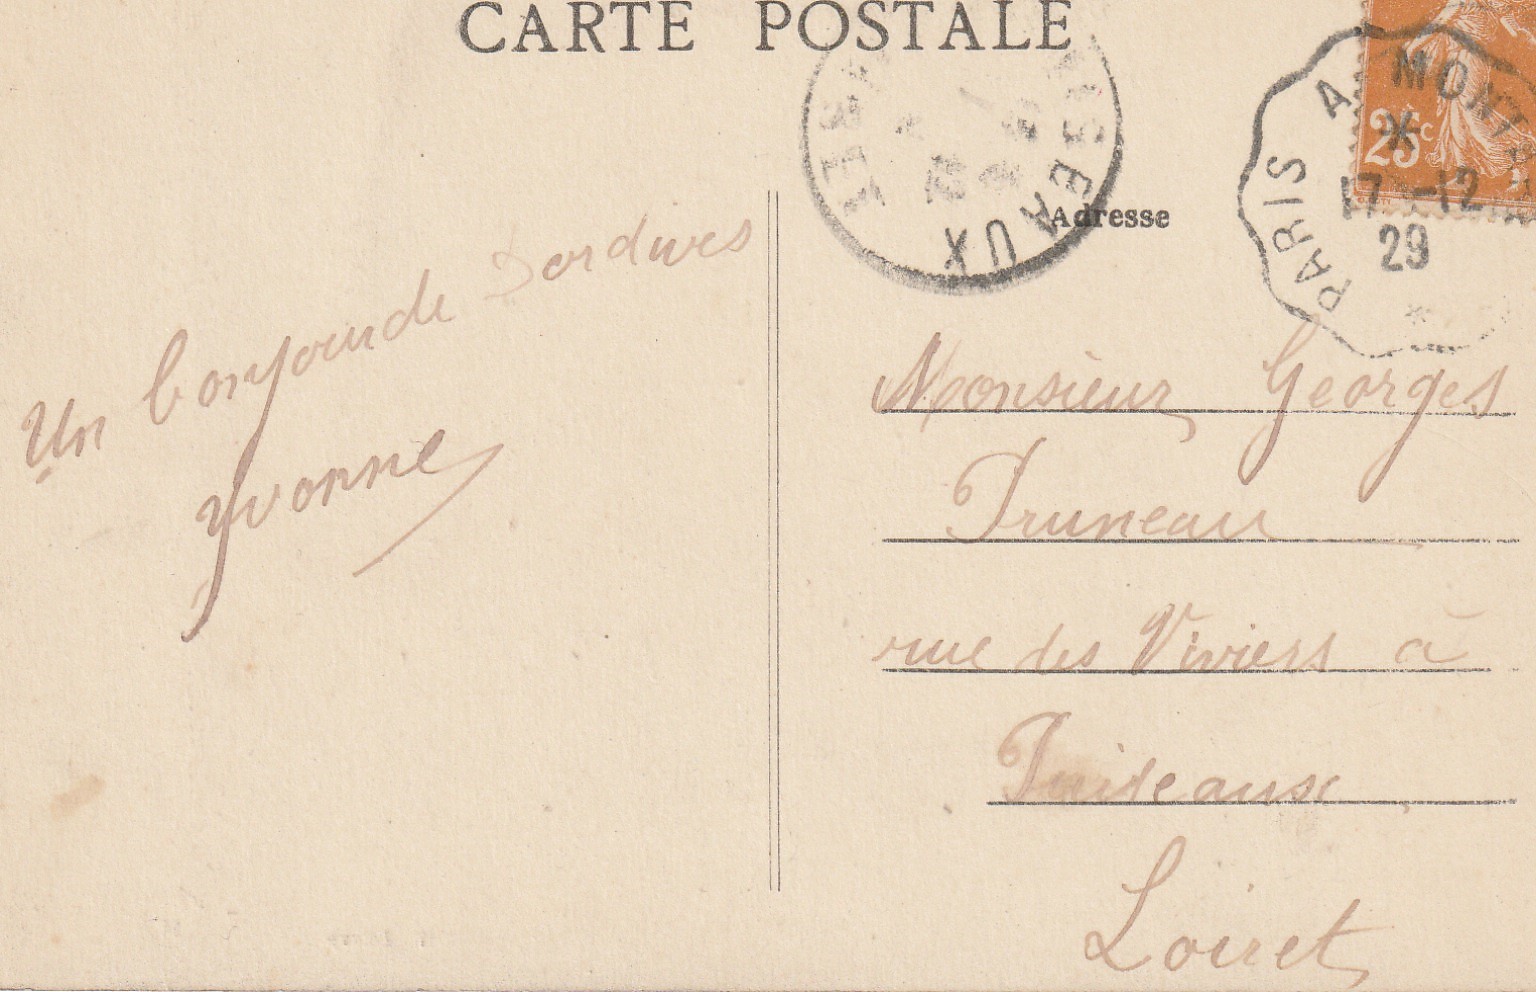 CARTE POSTALE
25c
PARIS A MONT
17 -12
29
Adresse
Un bonjour de Dordives
Yvonne
Monsieur Georges
Pruneau
rue des Viviers à
Puiseaux
Loiret